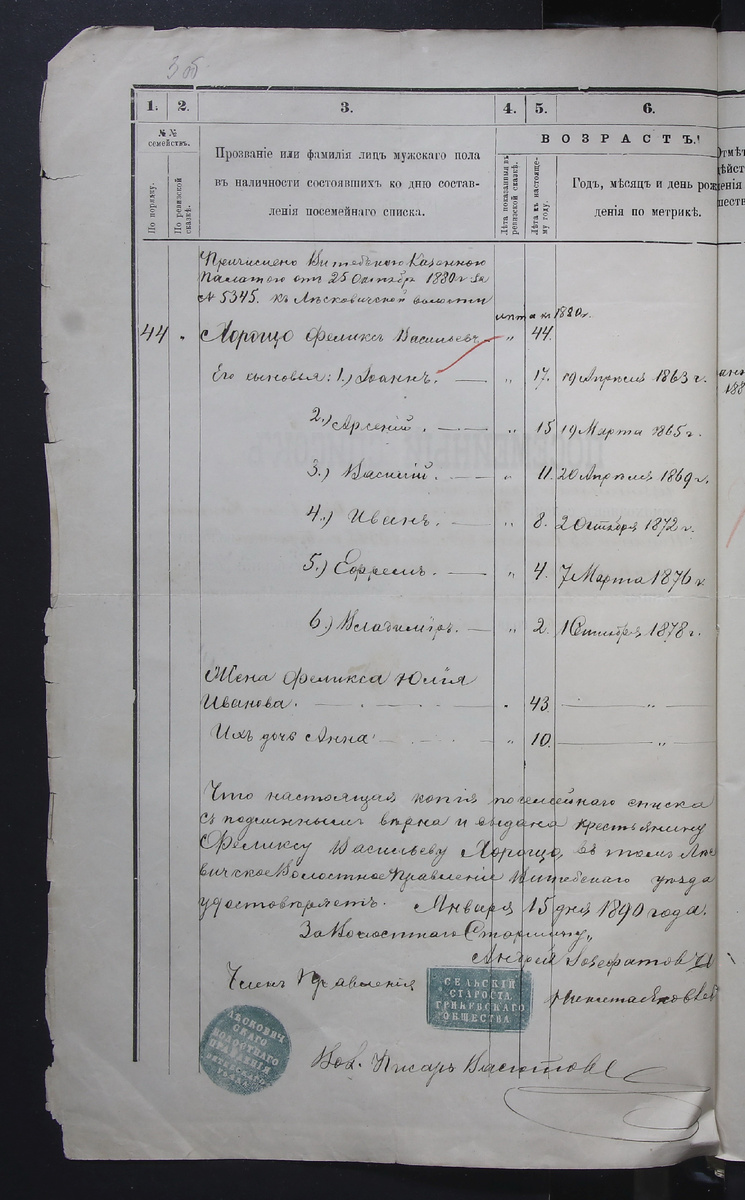 3 об
1. 2. 3. 4. 5. 6.
№№ семействъ.
По порядку.
По ревизской сказкѣ.
Прозваніе или фамилія лицъ мужскаго пола
въ наличности состоявшихъ ко дню состав-
ленія посемейнаго списка.
Лѣта показанныя въ ревизской сказкѣ.
ВОЗРАСТЪ.
Лѣта къ настояще-
му году.
Годъ, мѣсяцъ и день рож
денія по метрикѣ.
Причислено Витебскою Казенною
Палатою отъ 25 Октября 1880 г. за
№ 5345. къ Лѣсковичской волости
лѣта къ 1880 г.
44 " Хорощо Феликсъ Васильевъ " 44.
Его сыновья: 1.) Іоаннъ. — " 17. 19 Апрѣля 1863 г.
2.) Арсеній. — " 15 19 Марта 1865 г.
3.) Василій. — " 11. 20 Апрѣля 1869 г.
4.) Иванъ. — " 8. 2 Октября 1872 г.
5.) Ефремъ. — " 4. 7 Марта 1876 г.
6.) Владиміръ. — " 2. 1 1878 г.
Жена Феликса Юлія
Иванова. — " 43 — "
Ихъ дочь Анна — " 10. — "
Что настоящая копія посемейнаго списка
съ подлиннымъ вѣрна и выдана крестьянину
Феликсу Васильеву Хорощо, въ томъ Лѣс
вичское Волостное Правленіе Витебскаго уѣзда
удостовѣряетъ. Января 15 дня 1890 года.
За Волостнаго Старшину,
Андрей
Членъ Правленія
СЕЛЬСКІЙ
СТАРОСТА
ГРИНЕВСКАГО
ОБЩЕСТВА
ЛѢСКОВИЧ
СКАГО
ВОЛОСТНАГО
ПРАВЛЕНІЯ
ВИТЕБСКАГО
УѢЗДА
Вол. Писарь